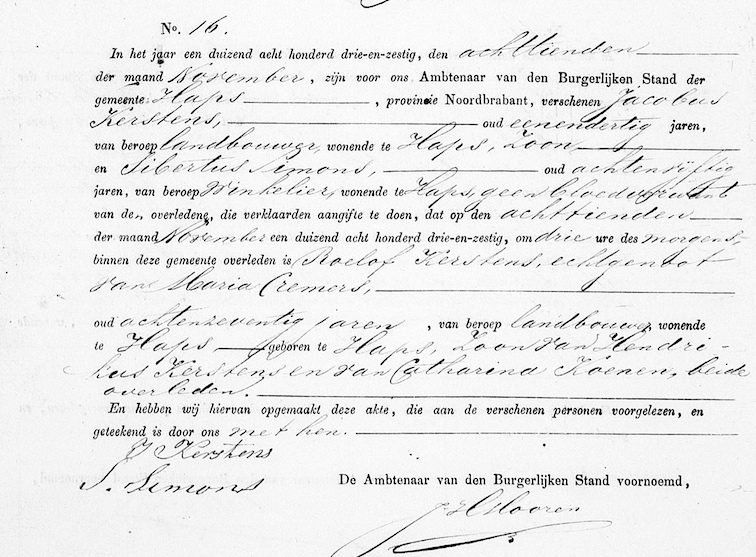 No. 16.
In het jaar een duizend acht honderd drie-en-zestig, den achttienden
der maand November, zijn voor ons Ambtenaar van den Burgerlijken Stand der
gemeente Haps, provincie Noordbrabant, verschenen Jacobus
Kerstens, oud eenendertig jaren,
van beroep landbouwer, wonende te Haps, Zoon
en Sibertus Simons, oud achtenvijftig
jaren, van beroep Winkelier, wonende te Haps, geen bloedverwant
van den overledene, die verklaarden aangifte te doen, dat op den achttienden
der maand November een duizend acht honderd drie-en-zestig, om drie ure des morgens,
binnen deze gemeente overleden is Roelof Kerstens, echtgenoot
van Maria Cremers,
oud achtenzeventig jaren, van beroep landbouwer, wonende
te Haps geboren te Haps, Zoon van Hendri-
kus Kerstens en van Catharina Koenen, beide
overleden.
En hebben wij hiervan opgemaakt deze akte, die aan de verschenen personen voorgelezen, en
geteekend is door ons met hen.
J Kerstens
S. Simons
De Ambtenaar van den Burgerlijken Stand voornoemd,